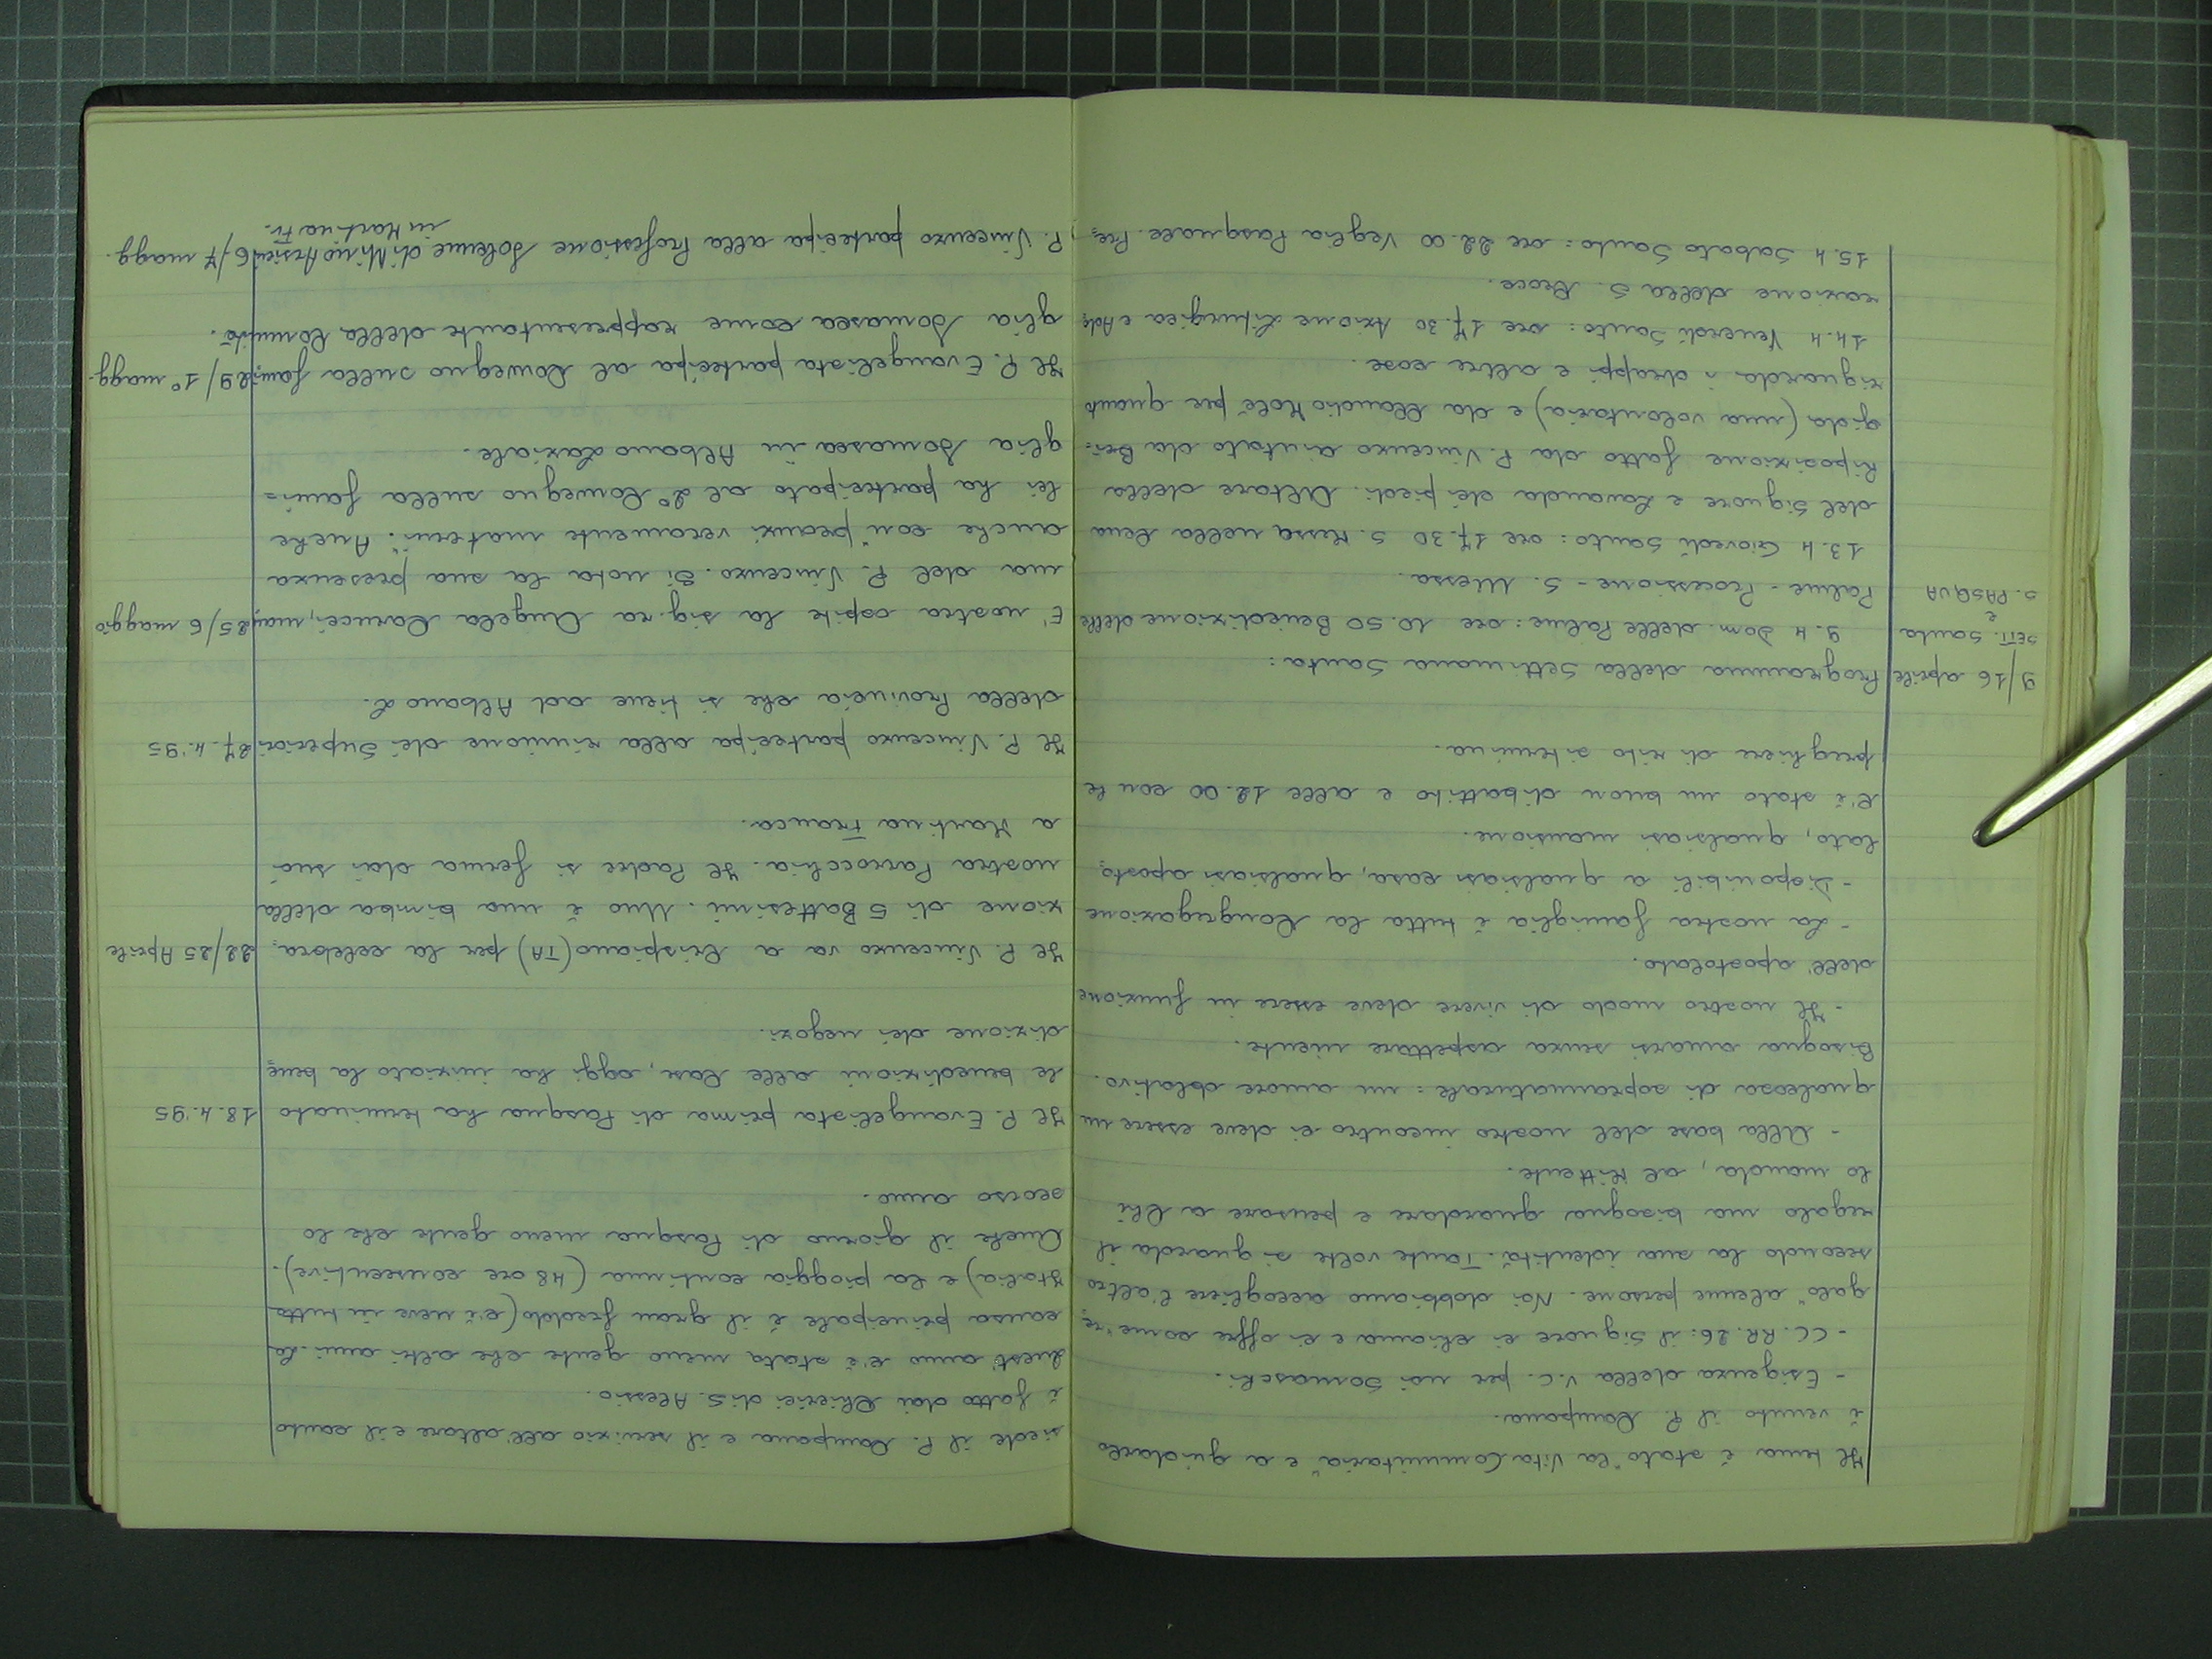 Il tema è stato "la Vita Comunitaria" e a guidarlo
è venuto il P. Campana.
- Esigenza della V.C. per noi Somaschi.
- CC. RR. 26: il Signore ci chiama e ci offre come "re=
galo" alcune persone. Noi dobbiamo accogliere l'altro
secondo la sua identità. Tante volte si guarda il
regalo ma bisogna guardare e pensare a Chi
lo manda, al Mittente.
- Alla base del nostro incontro ci deve essere un
qualcosa di soprannaturale: un amore oblativo.
Bisogna amarsi senza aspettare niente.
- Il nostro modo di vivere deve essere in funzione
dell'apostolato.
- La nostra famiglia è tutta la Congregazione
- Disponibili a qualsiasi casa, qualsiasi aposto=
lato, qualsiasi mansione.
C'è stato un buon dibattito e alle 12.00 con le
preghiere di rito si termina.
9/16 aprile Programma della Settimana Santa:
SETT. Santa 9.4 Dom. delle Palme: ore 10.50 Benedizione delle
e
S. PASQUA Palme - Processione - S. Messa.
13.4 Giovedì Santo: ore 17.30 S. Messa nella Cena
del Signore e Lavanda dei piedi. Altare della
Riposizione fatto da P. Vincenzo aiutato da Bri=
gida (una volontaria) e da Claudio Molè per quanto
riguarda i drappi e altre cose.
14.4 Venerdì Santo: ore 17.30 Azione Liturgica e Ado=
razione della S. Croce.
15.4 Sabato Santo: ore 22.00 Veglia Pasquale. Pre=
siede il P. Campana e il servizio all'altare e il canto
è fatto dai Chierici di S. Alessio.
Quest'anno c'è stata meno gente che altri anni. La
causa principale è il gran freddo (c'è neve in tutta
Italia) e la pioggia continua (48 ore consecutive).
Anche il giorno di Pasqua meno gente che lo
scorso anno.
Il P. Evangelista prima di Pasqua ha terminato 18.4.'95
le benedizioni alle Case, oggi ha iniziato la bene=
dizione dei negozi.
Il P. Vincenzo va a Crispiano (TA) per la celebra= 22/25 Aprile
zione di 5 Battesimi. Uno è una bimba della
nostra Parrocchia. Il Padre si ferma dai suoi
a Martina Franca.
Il P. Vincenzo partecipa alla riunione dei Superiori 27.4.'95
della Provincia che si tiene ad Albano L.
E' nostra ospite la sig.ra Angela Carucci, mam= 25/6 maggio
ma del P. Vincenzo. Si nota la sua presenza
anche con "pranzi veramente materni". Anche
lei ha partecipato al 2° Convegno sulla fami=
glia Somasca in Albano Laziale.
Il P. Evangelista partecipa al Convegno sulla fami= 29/1° magg.
glia Somasca come rappresentante della Comunità.
P. Vincenzo partecipa alla Professione Solenne di 6/7 magg.
in Martina Fr.